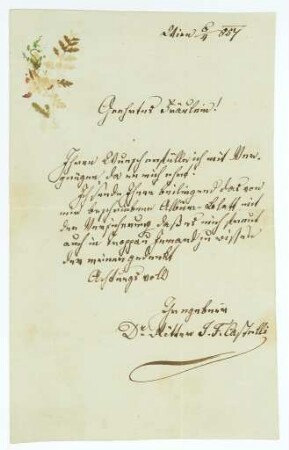 Wien 6/4 857
Geehrtes Fräulein!
Ihren Wunsch erfülle ich mit Ver-
gnügen da er mich ehrt!
Ich sende Ihnen beiliegend das von
mir beschriebene Album-Blatt mit
der Versicherung daß es mich freut
auch in Troppau jemand zu wissen
der meiner gedenkt
Achtungsvoll
Ihr ergebener
Dr Ritter I. F. Castelli